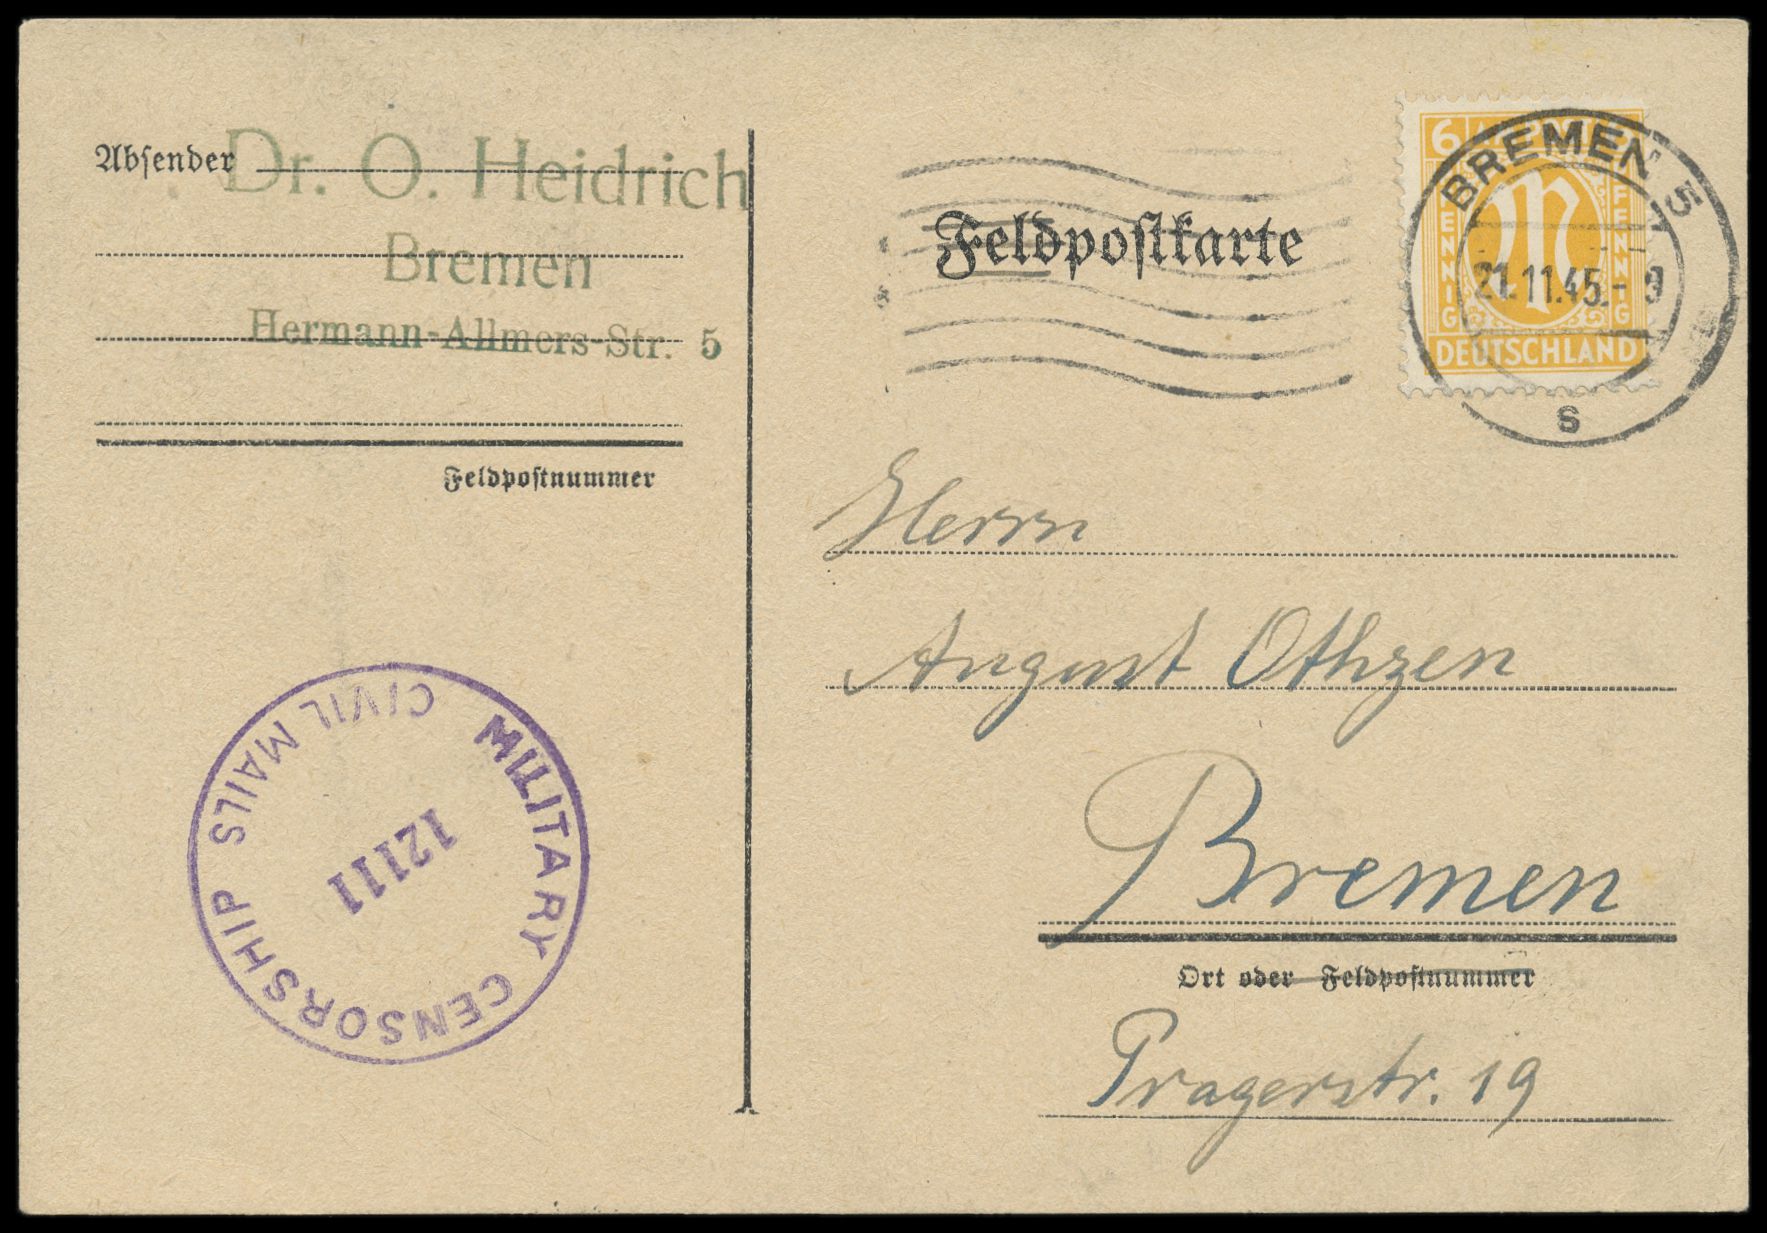 Absender
Dr. O. Heidrich
Bremen
Hermann-Allmers-Str. 5
Feldpostnummer
MILITARY CENSORSHIP
CIVIL MAILS
12111
Feldpostkarte
6
PFENNIG
PFENNIG
DEUTSCHLAND
M
BREMEN 5
21.11.45.- 9
s
Herrn
August Othzen
Bremen
Ort oder Feldpostnummer
Pragerstr. 19